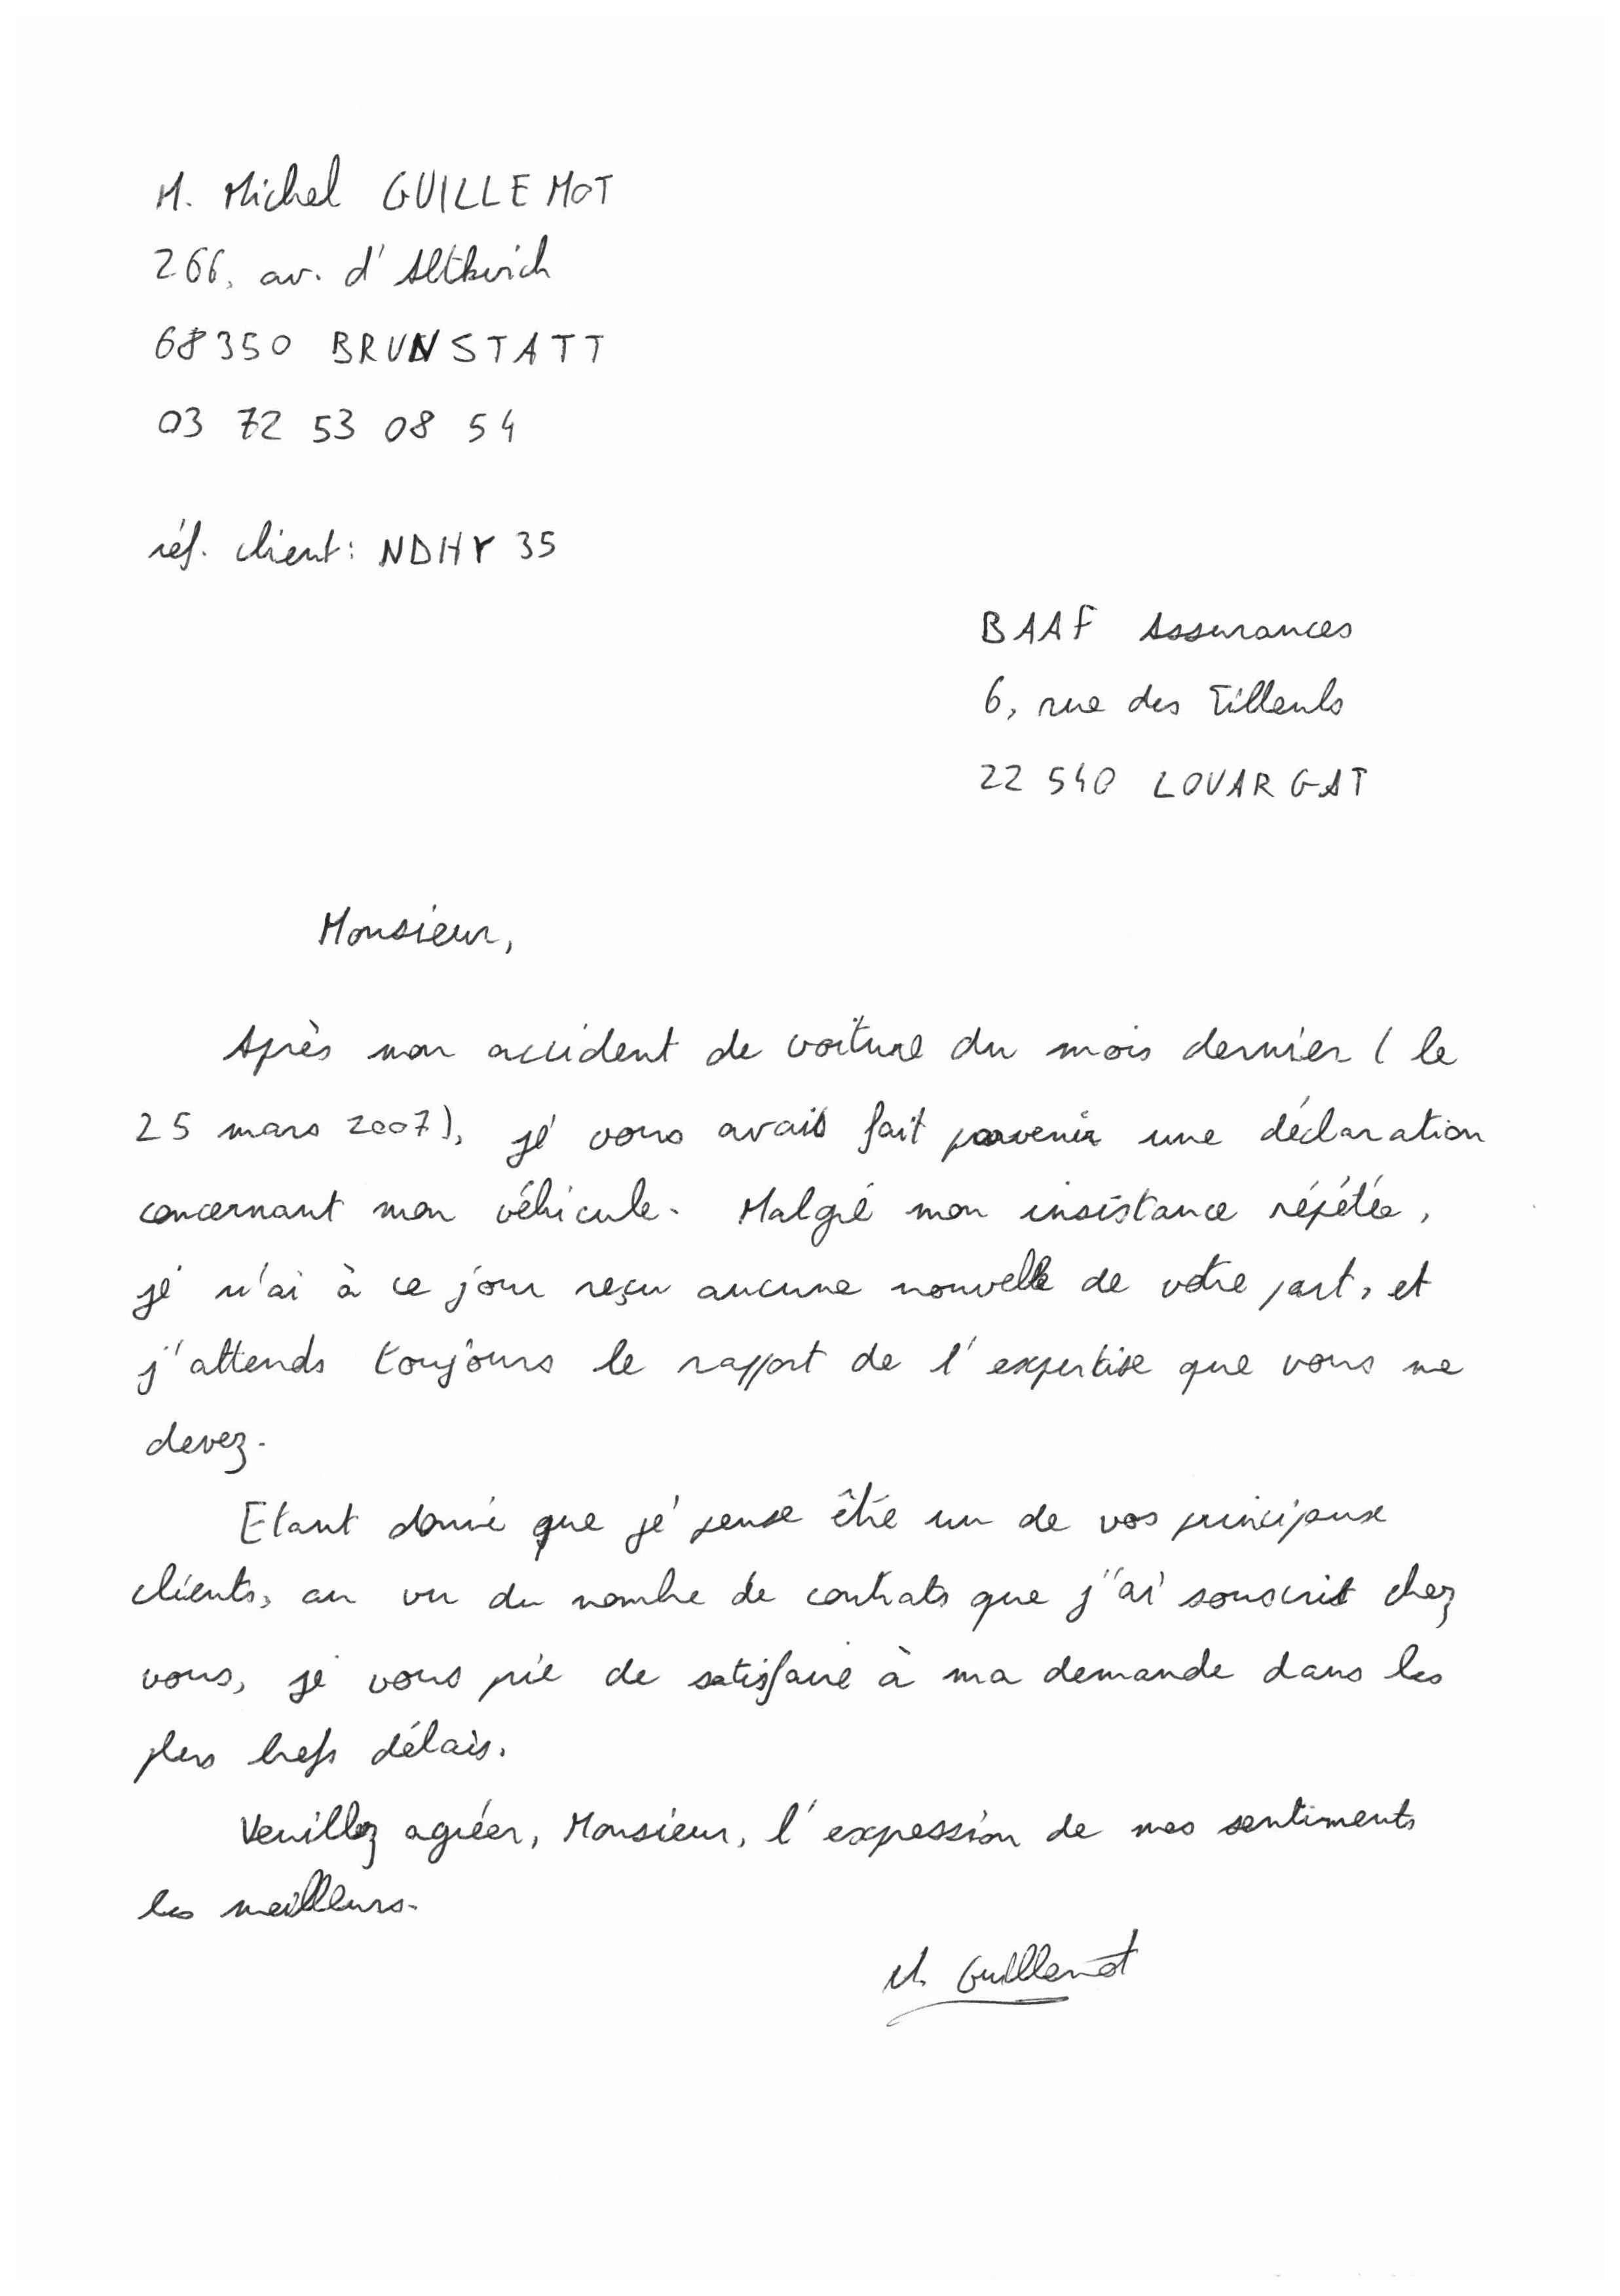 M. Michel GUILLEMOT
266, av. d'Altkirch
68350 BRUNSTATT
03 72 53 08 54
réf. client : NDHY 35
BAAF Assurances
6, rue des Tilleuls
22 540 LOUARGAT
Monsieur,
Après mon accident de voiture du mois dernier (le
25 mars 2007), je vous avais fait parvenir une déclaration
concernant mon véhicule. Malgré mon insistance répétée,
je n'ai à ce jour reçu aucune nouvelle de votre part, et
j'attends toujours le rapport de l'expertise que vous me
devez.
Etant donné que je pense être un de vos principaux
clients, au vu du nombre de contrats que j'ai souscrit chez
vous, je vous prie de satisfaire à ma demande dans les
plus brefs délais.
Veuillez agréer, Monsieur, l'expression de mes sentiments
les meilleurs.
M. Guillemot